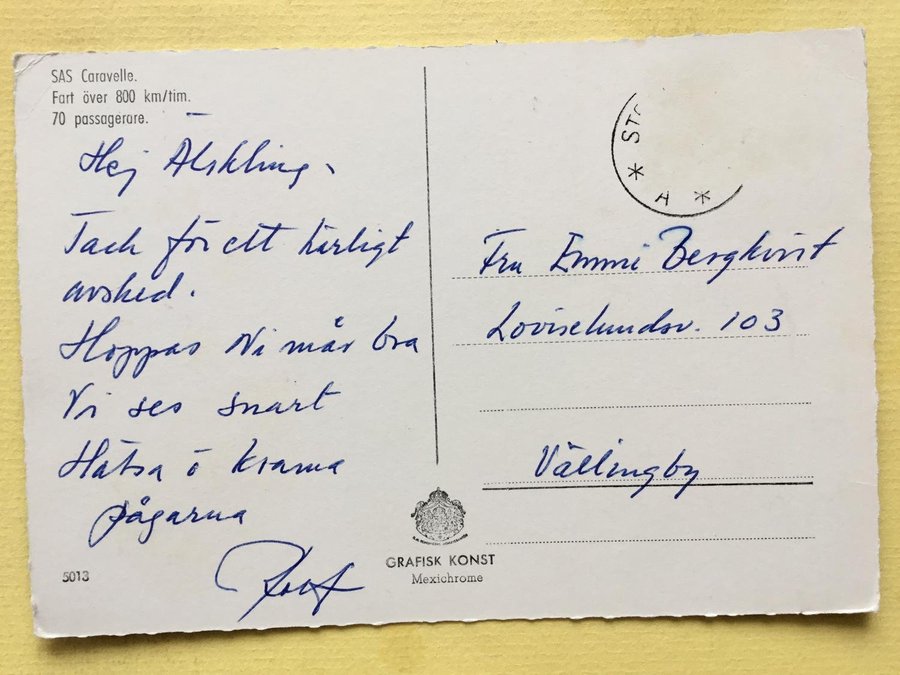 SAS Caravelle.
Fart över 800 km/tim.
70 passagerare.
Hej Älskling,
Tack för ett härligt
avsked.
Hoppas Ni mår bra
Vi ses snart
Hälsa o krama
pågarna
Rolf
5013
GRAFISK KONST
Mexichrome
* STO
A *
Fru Emmi Bergkvist
Loviselundsv. 103
Vällingby